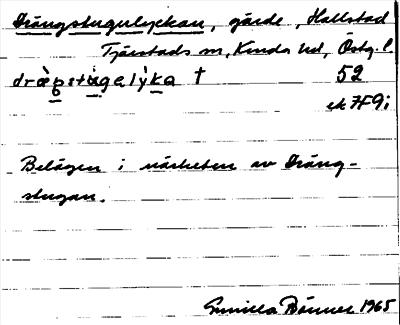 Drängstugulyckan, gärde, Hallstad
Tjärstads sn, Kinda hd, Östg. l.
52
ek 7F9i
Belägen i närheten av Dräng-
stugan.
Gunilla 1965